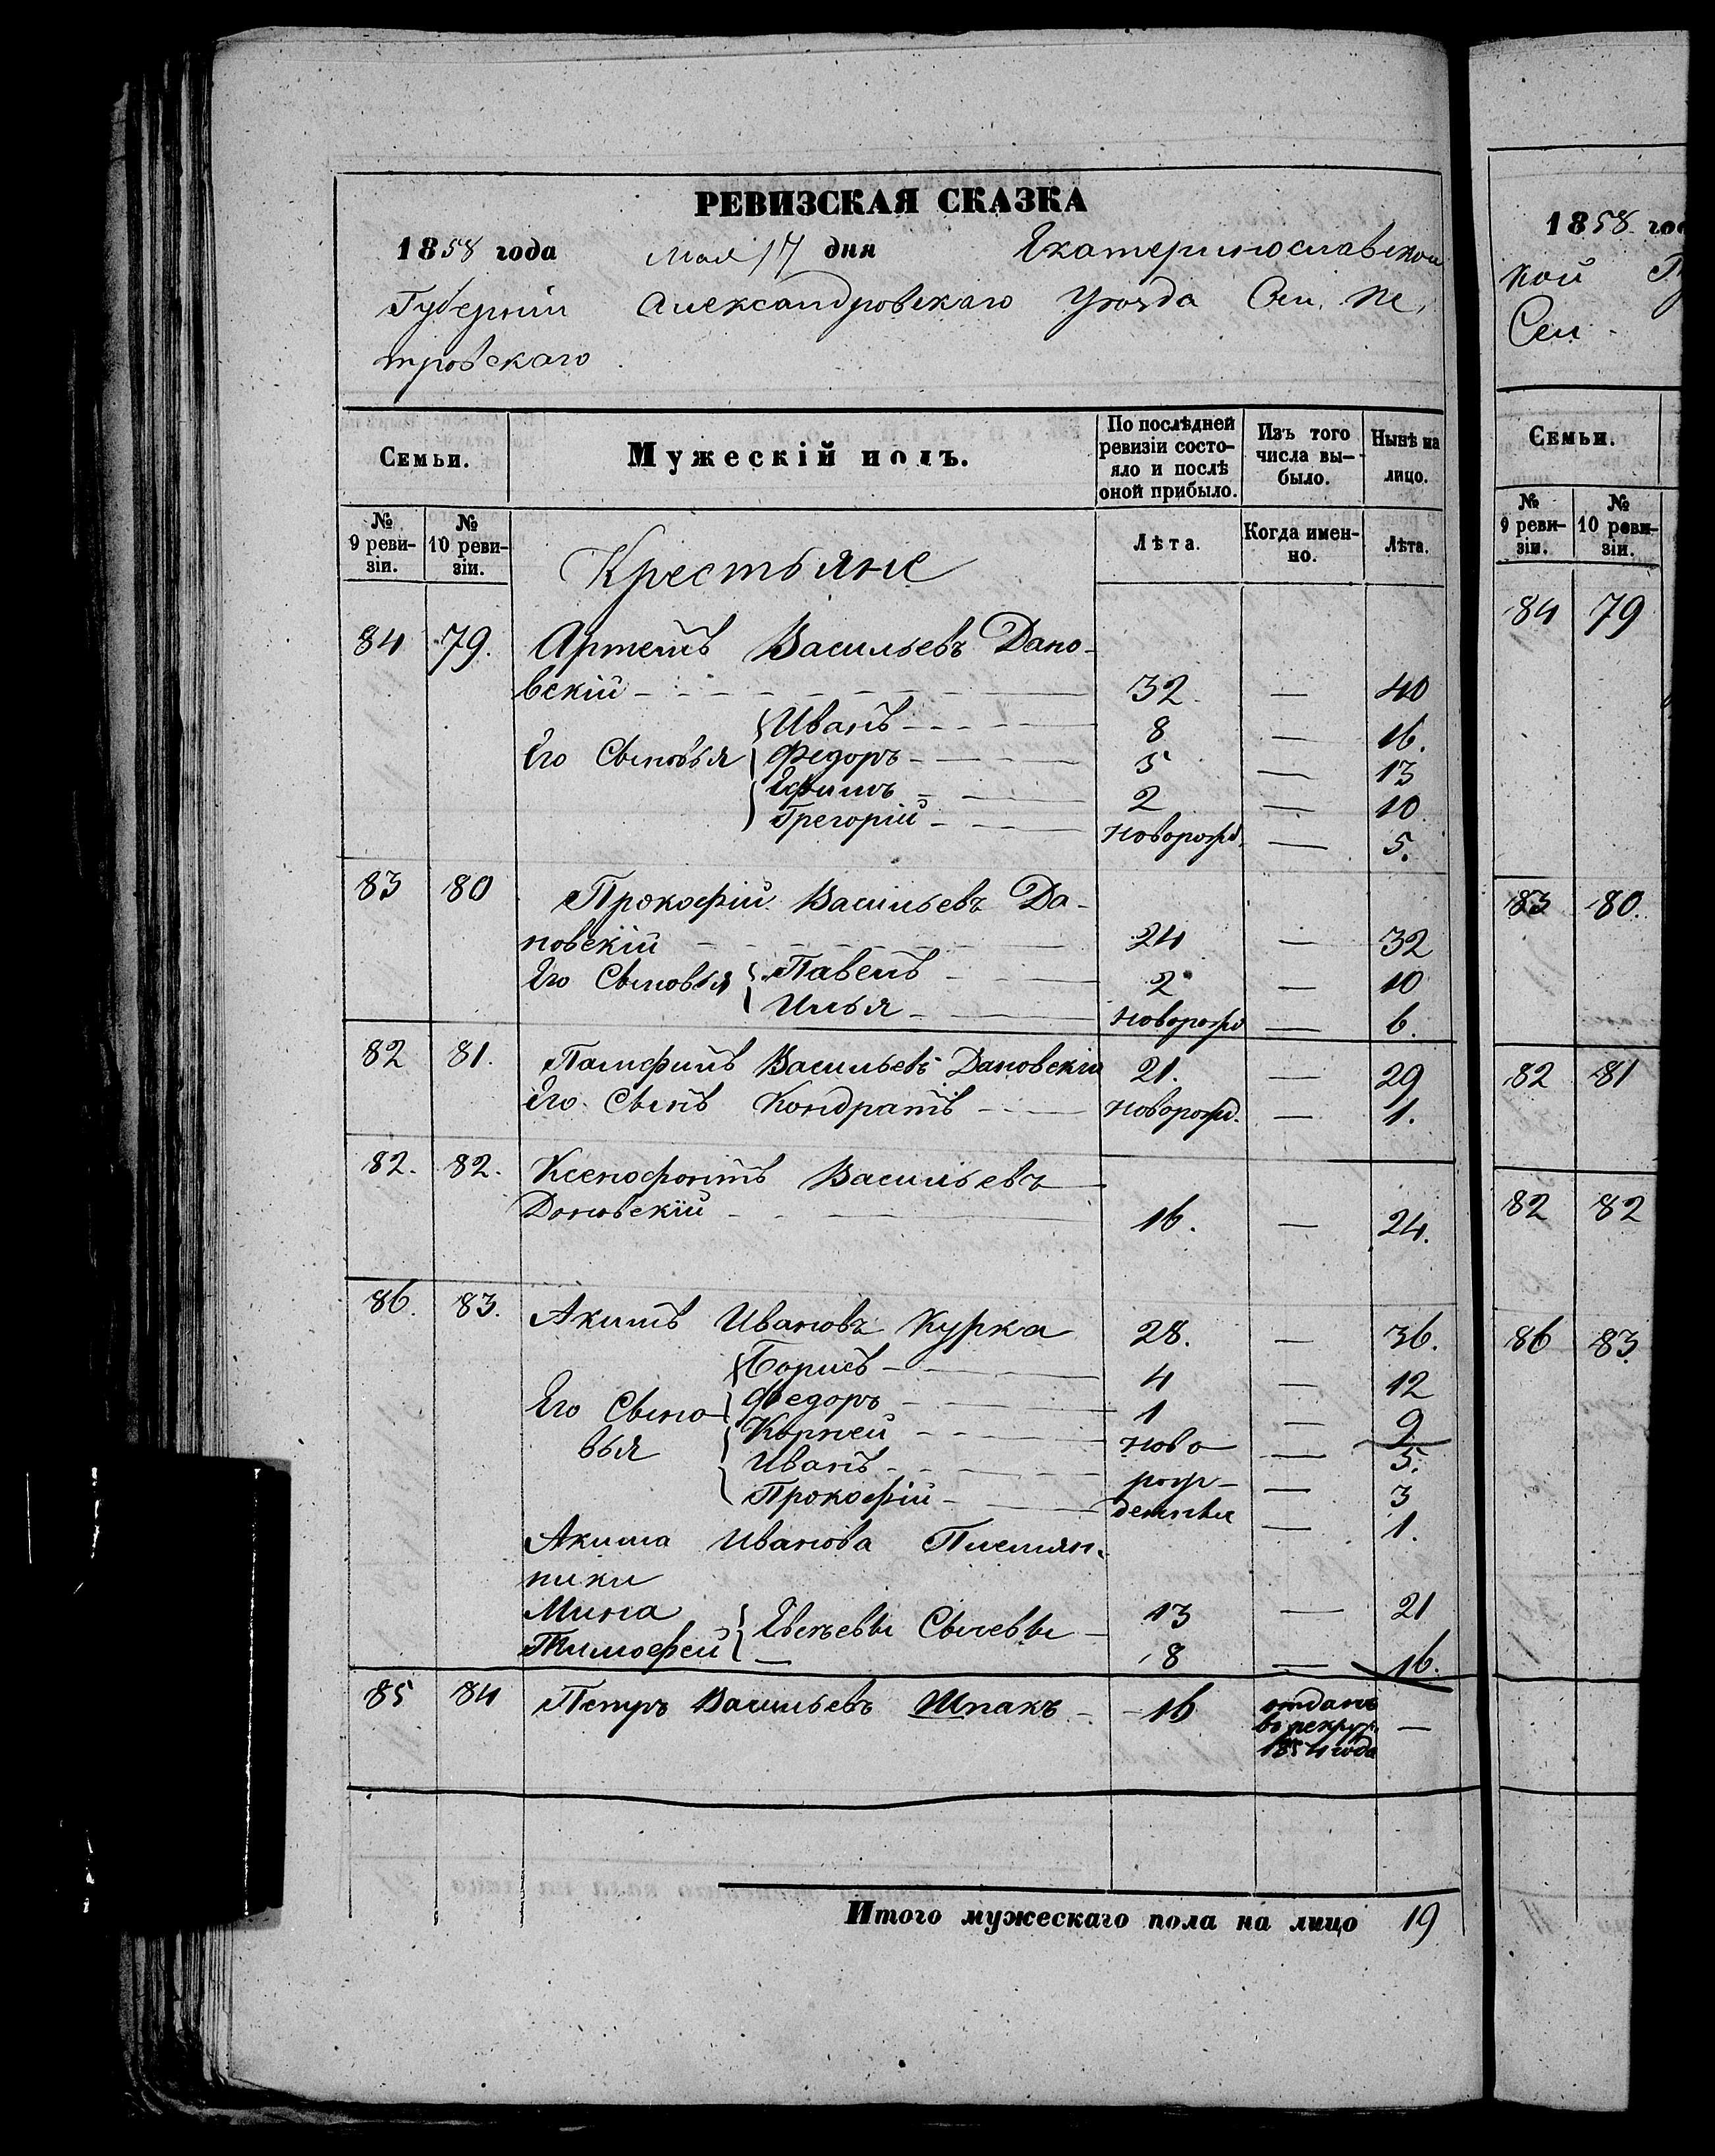 РЕВИЗСКАЯ СКАЗКА
1858 года мая 17 дня Екатеринославской
Губерніи Александровскаго Уѣзда Сел. Пе-
тровскаго
Семьи. Мужескій полъ. По послѣдней ревизіи состояло и послѣ оной прибыло. Изъ того числа выбыло. Нынѣ на лицо.
№ 9 ревизіи. № 10 ревизіи. Лѣта. Когда именно. Лѣта.
Крестьяне
84 79. Артемъ Васильевъ Дано-
вскій 32 — 40
Его Сыновья Иванъ 8 — 16.
Федоръ 5 — 13
Ефимъ 2 — 10
Грегорій новорожд. — 5.
83 80 Прокофій Васильевъ Да-
новскій 24 — 32
Его Сыновья Павелъ 2 — 10
Илья новорожд — 6.
82 81. Памфилъ Васильевъ Дановскій 21. — 29
Его Сынъ Кондратъ новорожд. — 1.
82. 82. Ксенофонтъ Васильевъ
Дановскій 16. — 24.
86. 83. Акимъ Ивановъ Курка 28. — 36.
Борисъ 4 — 12
Его Сыно- Федоръ 1 — 9
вья Корней ново — 5.
Иванъ рож- — 3
Прокофій — 1.
Акима Иванова Племян-
ники
Мина 13 — 21
Тимофей Сычевы 8 — 16.
85 84 Петръ Васильевъ Шпакъ 16 отданъ —
в рекрут.
1854 года
Итого мужескаго пола на лицо 19
1858 год
кой
Сел.
Семьи.
№ 9 ревизіи. № 10 ревизіи.
84 79
83 80.
82 81
82 82
86 83